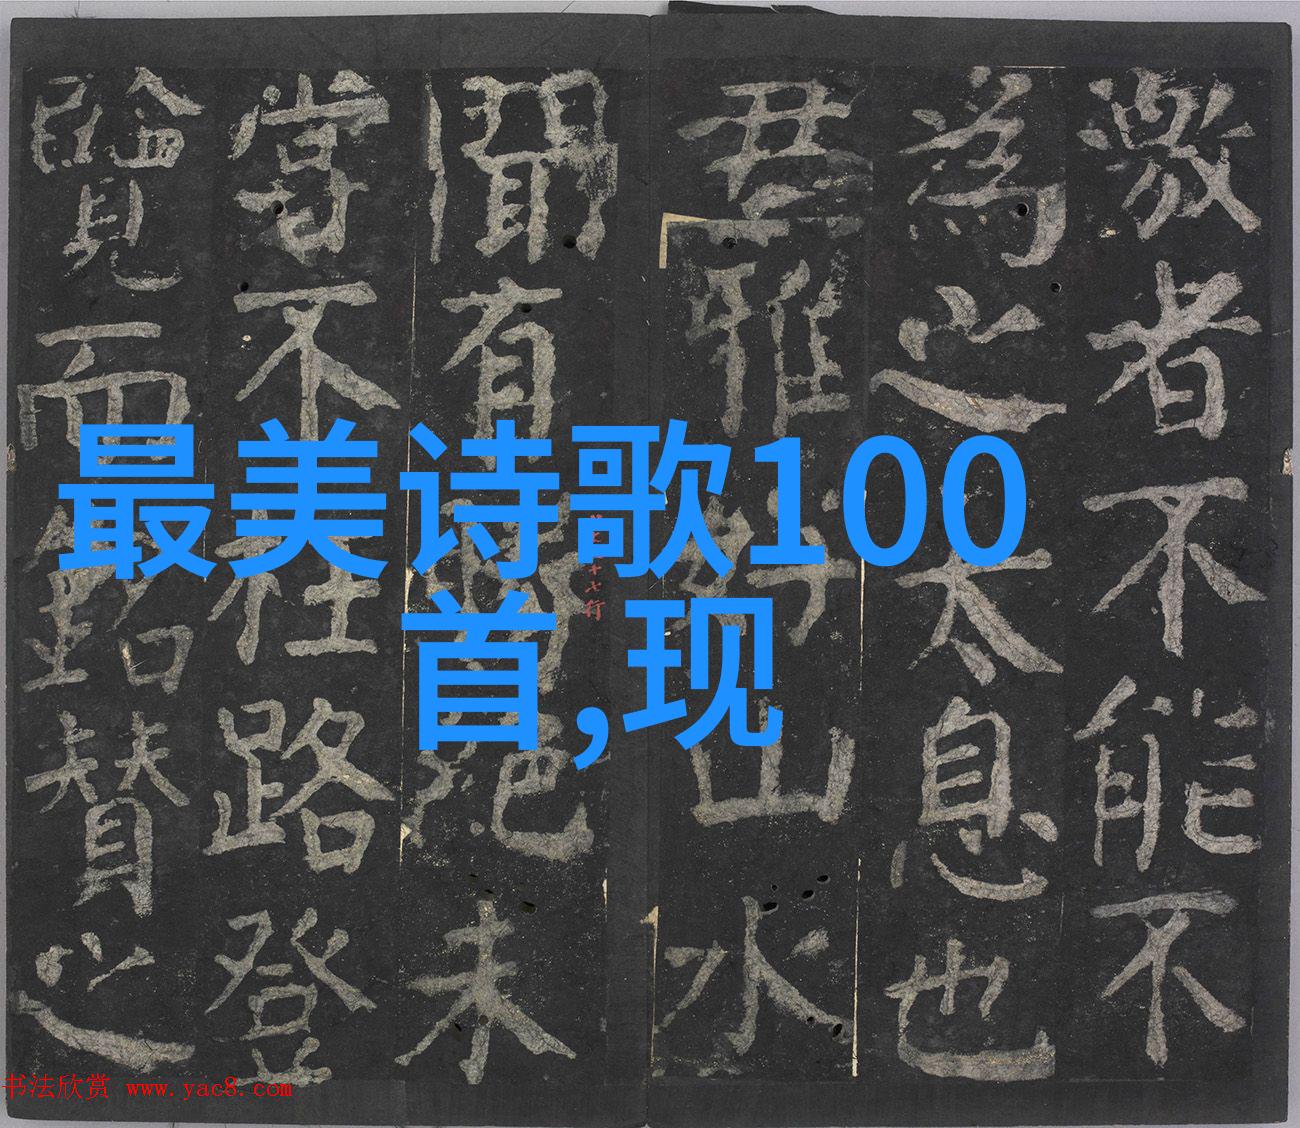 最美诗歌100
首,现
激者不能不
為之太息也
君雅好山水
聞有絕未
嘗不枉路登
覽而銘贊之
书法欣赏 www.yac8.com